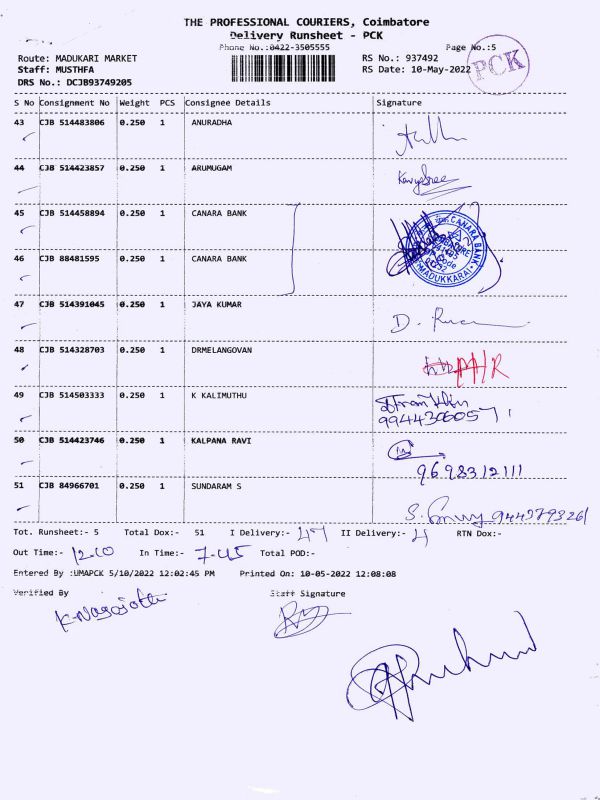 THE PROFESSIONAL COURIERS, Coimbatore
Delivery Runsheet - PCK
Phone No.:0422-3505555
Page No.:5
Route: MADUKARI MARKET
RS No.: 937492
Staff: MUSTHFA
RS Date: 10-May-2022
PCK
DRS No.: DCJB93749205
S No Consignment No Weight PCS Consignee Details Signature
43 CJB 514483806 0.250 1 ANURADHA
44 CJB 514423857 0.250 1 ARUMUGAM Kavyasree
45 CJB 514458894 0.250 1 CANARA BANK
CANARA BANK
MADUKKARAI
46 CJB 88481595 0.250 1 CANARA BANK
47 CJB 514391045 0.250 1 JAYA KUMAR
48 CJB 514328703 0.250 1 DRMELANGOVAN
49 CJB 514503333 0.250 1 K KALIMUTHU
9944306057
50 CJB 514423746 0.250 1 KALPANA RAVI
9698312111
51 CJB 84966701 0.250 1 SUNDARAM S
Tot. Runsheet:- 5 Total Dox:- 51 I Delivery:- 47 II Delivery:- 4 RTN Dox:-
Out Time:- 12.10 In Time:- 7.45 Total POD:-
Entered By :UMAPCK 5/10/2022 12:02:45 PM Printed On: 10-05-2022 12:08:08
Verified By Staff Signature